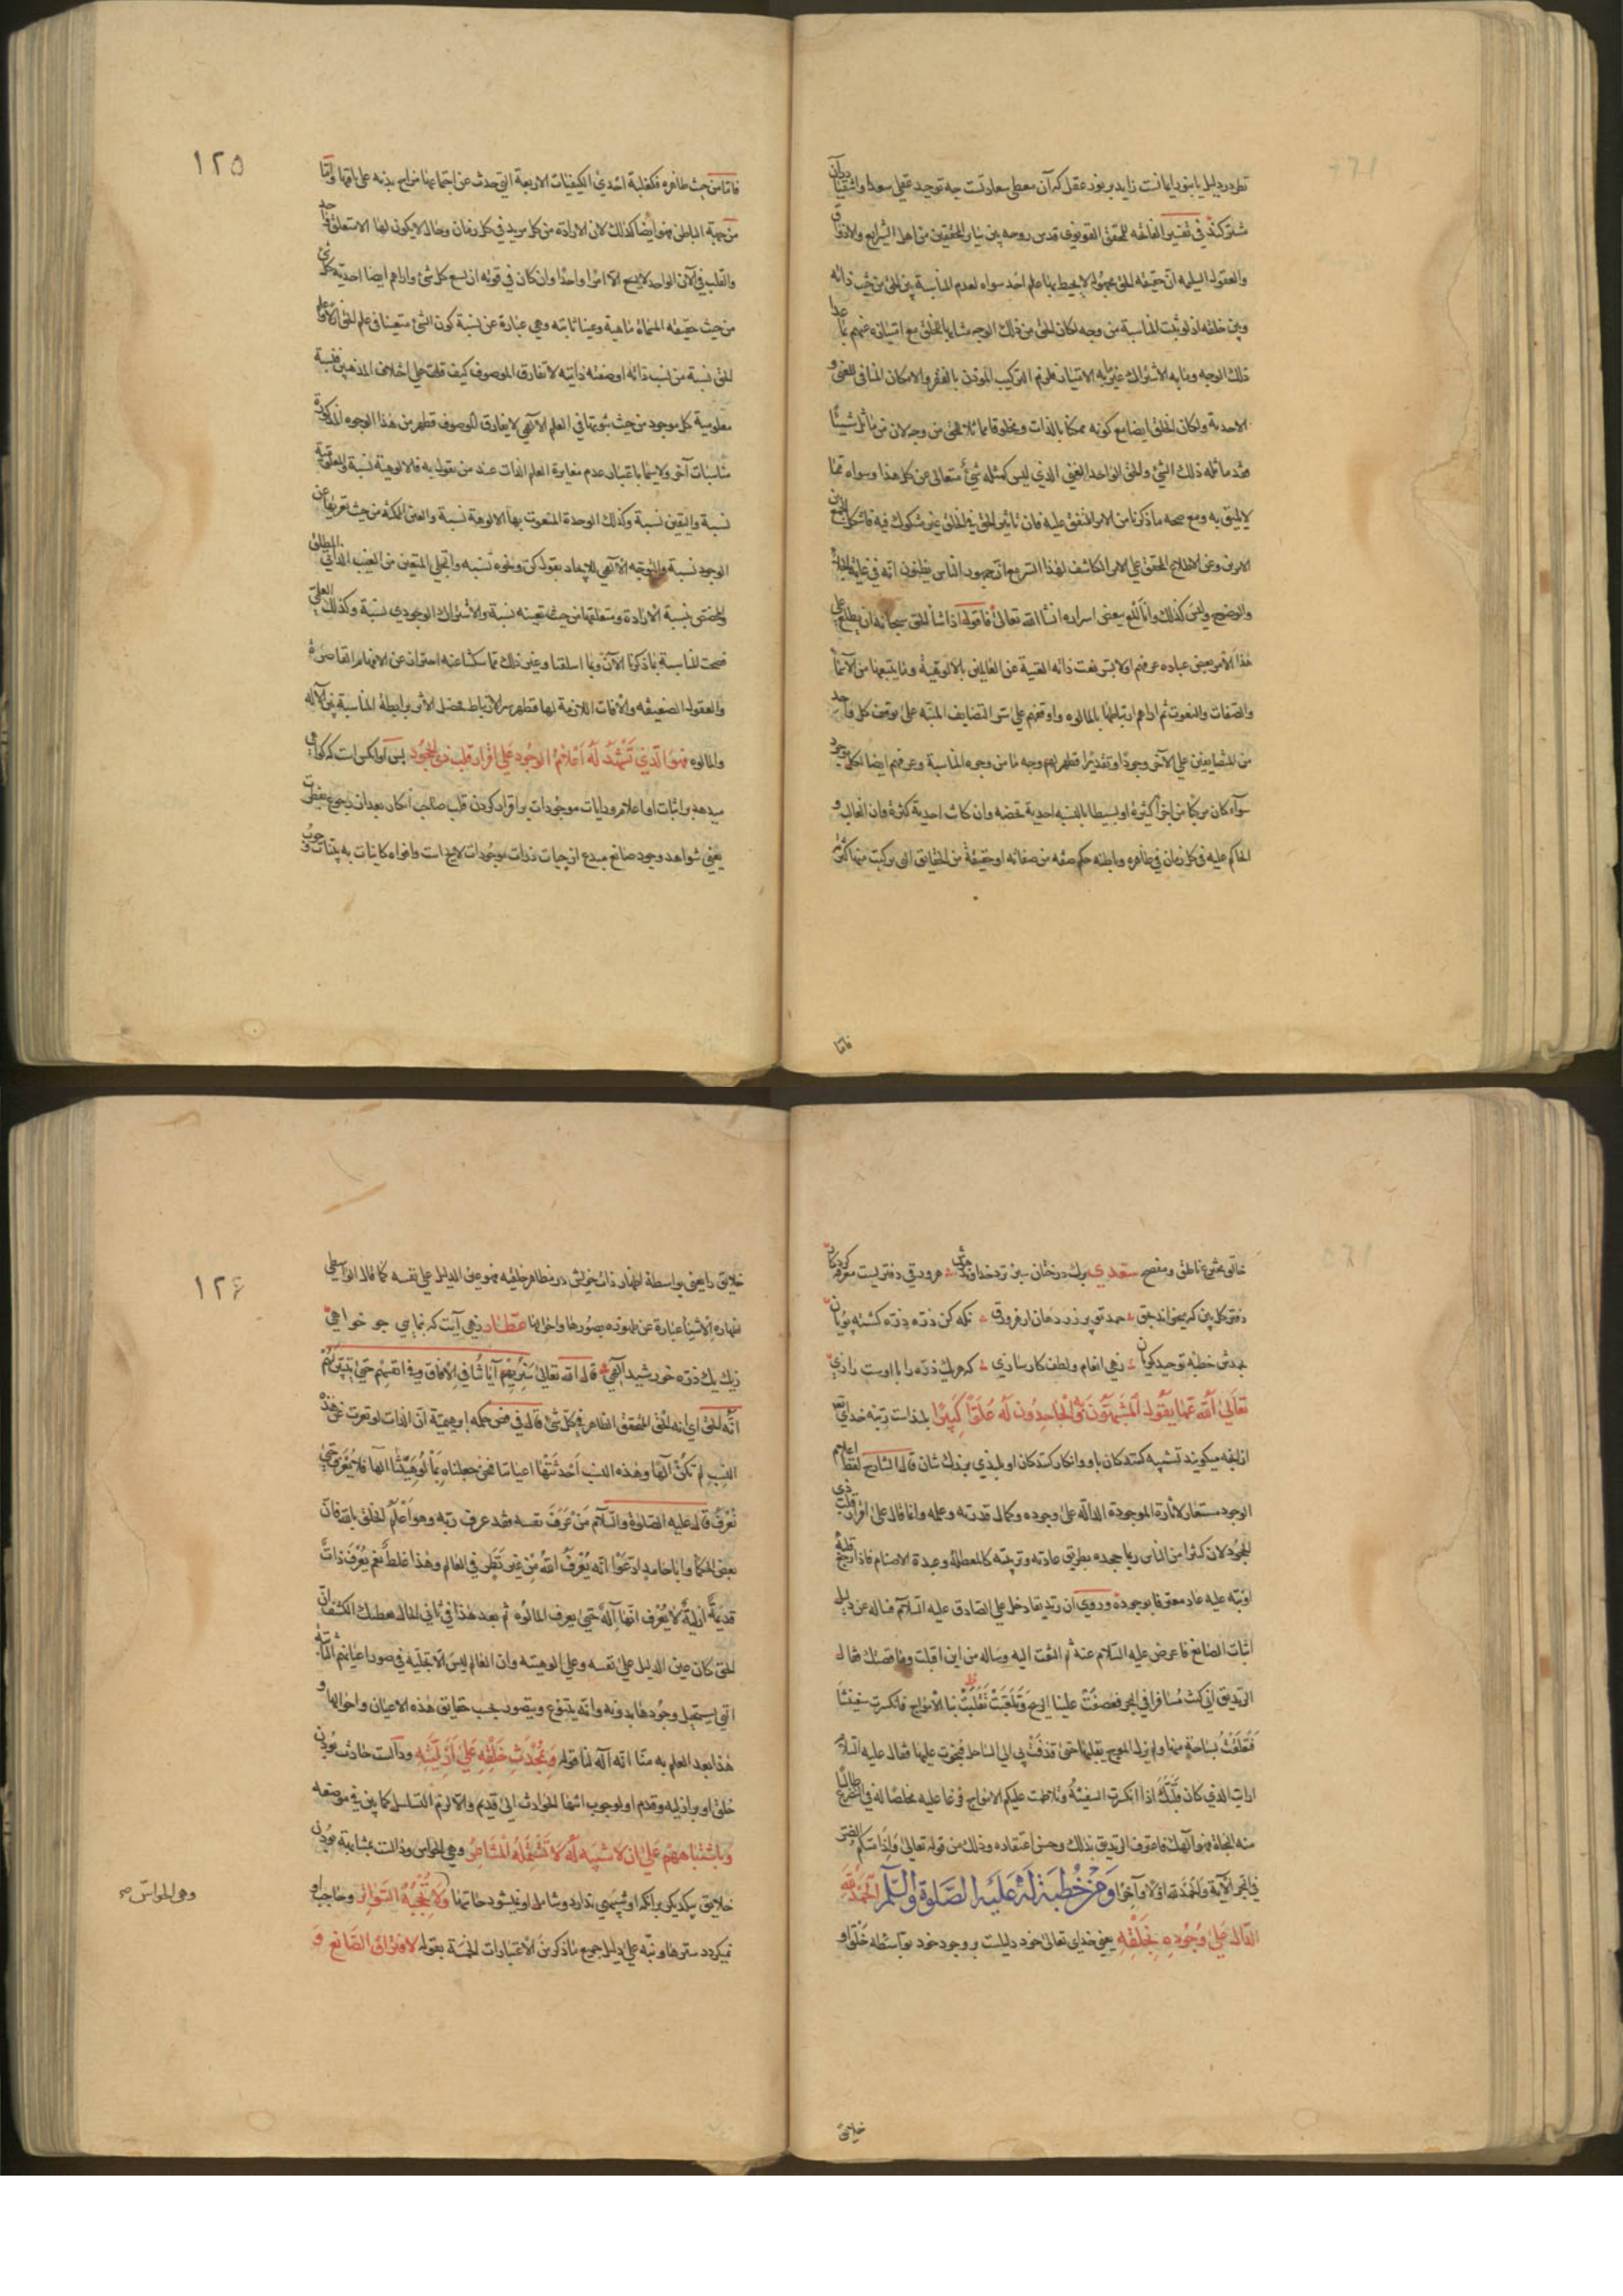 نظر در دلیل یا بنور ایمانست زاید بر نور عقل که آن معطی سعادتست چه توحید عقلی سعدا و اشقیا را در آن
مشترکند فی تفسیر الفاتحه للمحقق القونوی قدس روحه بین سایر المحققین من اهل الشرایع والاذواق
والعقول السلیمه ان حقیقة الحق مجهولة لا یحیط بها علم احد سواه لعدم المناسبة بین الحق من حیث ذاته
وبین خلقه اذ لو ثبتت المناسبة من وجه لکان الحق من ذلک الوجه مشابها للخلق مع امتیازه عنهم بما عدا
ذلک الوجه وما به الاشتراک غیر ما به الامتیاز فلزم الترکیب الموذن بالفقر والامکان المنافی للغنی و
الاحدیة ولکان الخلق ایضا مع کونه ممکنا بالذات ومخلوقا مماثلا للحق من وجه لان من ماثل شیئا
فقد ماثله ذلک الشیء والحق الواحد الغنی الذی لیس کمثله شیء متعالی عن کل هذا وسواه مما
لا یلیق به ومع صحه ما ذکرنا من الامر المتفق علیه فان تاثیر الحق فی الخلق غیر مشکوک فیه فاشکل الجمع بین
الامرین وعز الاطلاع المحقق علی الامر الکاشف لهذا السر مع ان جمهور الناس یظنون انه فی غایة الجلاء
والوضوح ولیس کذلک وانا المع ببعض اسراره ان شاء الله تعالی فاقول اذا شاء الحق سبحانه ان یطلع علی
هذا الامر بعض عباده عرفهم اولا بسر نعت ذاته الغنیة عن العالمین بالالوهیة وما یتبعها من الاسماء
والصفات والنعوت ثم اراهم ارتباطها بالمالوه واوقفهم علی سر التضایف المنبه علی توقف کل واحد
من المتضایفین علی الآخر وجودا وتقدیرا فظهر لهم وجه ما من وجوه المناسبة وعرفهم ایضا ان کل موجود
سوآء کان مرکبا من اجزاء کثیرة او بسیطا بالنسبه احدیة تخصه وان کانت احدیة کثرة فان الغالب و
الحاکم علیه فی کل زمان فی ظاهره وباطنه حکم صفه من صفاته او حقیقة من الحقایق التی ترکبت منها کثرته
فاما
۱۲۵
فاما من حیث ظاهره فکغلبة احدی الکیفیات الاربعة التی حدث عن اجتماعها مزاج بدنه علی باقیها واما
من جهة الباطن فهو ایضا کذلک لان الارادة من کل مرید فی کل زمان وحال لا یکون لها الا متعلق واحد
والقلب فی الآن الواحد لا یسع الا امرا واحدا وان کان فی قوته ان یسع کل شیء واراهم ایضا احدیة کل شیء
من حیث حقیقته المسماة ماهیة وعینا ثابته وهی عبارة عن نسبة کون الشیء متعینا فی علم الحق ازلا وعلم
الحق نسبة من نسب ذاته او صفته ذاتیه لا تفارق الموصوف کیف قلت علی اختلاف المذهبین فنسبة
معلومیة کل موجود من حیث ثبوتها فی العلم الآلهی لا یفارق الموصوف فظهر من هذا الوجوه المذکورة
مناسبات آخر ولا سیما باعتبار عدم مغایرة العلم الذات عند من یقول به فالالوهیة نسبة والمعلومیة
نسبة والیقین نسبة وکذلک الوحدة المنعوت بها الالوهة نسبة والعین الممکنة من حیث تعریها عن
الوجود نسبة والتوجه الآلهی للایجاد بقول کن ونحوه نسبه والتجلی المتعین من الغیب الذاتی المطلق
والمخصص بنسبة الارادة ومتعلقها من حیث تعینه نسبة والاشتراک الوجودی نسبة وکذلک العلمی
فصحت المناسبة بما ذکرنا الآن وبما اسلفنا وغیر ذلک مما سکتنا عنه احترازا عن الافهام القاصرة
والعقول الضعیفه والآفات اللازمة لها فظهر سر الارتباط فحصل الاثر برابطة المناسبة بین الآله
والمالوه فهو الذی تشهد له اعلام الوجود علی اقرار قلب ذی الجحود پس او آنکس است که گواهی
میدهد بر اثبات او اعلام ورایات موجودات بر اقرار کردن قلب صاحب انکار بعد از رجوع بفطرت
یعنی شواهد وجود صانع مبدع از جبات ذرات موجودات لایح است وافواه کاینات به بینات وجوب
خالق بحق ناطق ومفصح سعدی برک درختان سبز نزد خداوند هوش هر ورقی دفتریست معرفت کردکار
دفتر کل بین که صبحی اندر چمن حمد تو بر زد دهان از هر ورق نکه کن ذره ذره کشته پویان
بحمدش خطبه توحید کویان زهی انعام ولطف کار سازی که هر یک ذره را با اوست رازی
تعالی الله عما یقول المشبهون به والجاحدون له علوا کبیرا بلند است رتبه خدای
از آنچه میکویند تشبیه کنندکان باو وانکار کنندکان او بلندی بزرک شان قال الشارح لفظ اعلام
الوجود مستعار لآثاره الموجودة الدالة علی وجوده وکمال قدرته وعلمه وانما قال علی اقرار قلب ذی
الجحود لان کثیرا من الناس ربما جحده بطریق عادته وتربیته کالمعطلة وعبدة الاصنام فاذا رجع قلبه
او نبه علیه عاد معترفا بوجوده وروی ان زندیقا دخل علی الصادق علیه السلام فساله عن دلیل
اثبات الصانع فاعرض علیه السلام عنه ثم التفت الیه وساله من این اقبلت وما قصتک فقال
الزندیق انی کنت مسافرا فی البحر فعصفت علینا الریح وتلعبت بنا الامواج فانکسرت سفینتنا
فتعلقت بساجة منها ولم یزل الموج یقلبها حتی قذفت بی الی الساحل فنجوت علیها فقال علیه السلام
ارایت الذی کان قلبک اذا انکسرت السفینة وتلاطمت علیکم الامواج فزعا علیه مخلصا له فی التضرع طالبا
منه النجاة فهو آلهک فاعترف الزندیق بذلک وحسن اعتقاده وذلک من قوله تعالی واذا مسکم الضر
فی البحر الآیة والحمد لله اولا وآخرا ومن خطبة له علیه الصلوة والسلم الحمد لله
الدال علی وجوده بخلقه یعنی خدای تعالی خود دلیلست بر وجود خود بواسطه خلق او
خلایق
۱۲۶
خلایق را یعنی بواسطة اظهار ذات خویش در مظاهر خلقیه فهو عین الدلیل علی نفسه کما قال الواسطی
اظهاره الاشیاء عبارة عن ظهوره بصورها واحوالها عطار زهی آیت که بنمایی جو خواهی
زیک یک ذره خورشید الهی قال الله تعالی سنریهم آیاتنا فی الافاق وفی انفسهم حتی یتبین لهم
انه الحق ای انه الحق المحقق الظاهر فی کل شیء قال فی فص حکمه ابراهیمیة ان الذات لو تعرت عن هذه
النسب لم تکن آلها وهذه النسب احدثتها اعیاننا فنحن جعلناه بمالوهیتنا الها فلا یعرف حتی
نعرف قال علیه الصلوة والسلام من عرف نفسه فقد عرف ربه وهو اعلم الخلق بالله فان
بعض الحکما وابا حامد ادعوا انه یعرف الله من غیر نظر فی العالم وهذا غلط نعم یعرف ذات
قدیمة ازلیة لا یعرف انها اله حتی یعرف المالوه ثم بعد هذا فی ثانی الحال یعطیک الکشف ان
الحق کان عین الدلیل علی نفسه وعلی الوهیته وان العالم لیس الا تجلیه فی صور اعیانهم الثابتة
التی یستحیل وجودها بدونه وانه یتنوع ویتصور بحسب حقایق هذه الاعیان واحوالها و
هذا بعد العلم به منا انه آله لنا قوله وبمحدث خلقه علی ازلیته ودالست حادث بودن
خلق او بر ازلیه وقدم او لوجوب انتها الحوادث الی قدیم والا لزم التسلسل کما بین فی موضعه
وباشتباههم علی ان لا شبیه له لا تشتمله المشاعر وهی الحواس ودالست بمشابهة بودن
خلایق بیکدیکر بر آنکه او شبیهی ندارد وشامل او نمیشود حاستها ولا تحجبه السواتر وحاجب او
نمیکردد سترها ونبه علی دلیل جمیع ما ذکر من الاعتبارات الخمسة بقوله لافتراق الصانع و
وهی الحواس صح